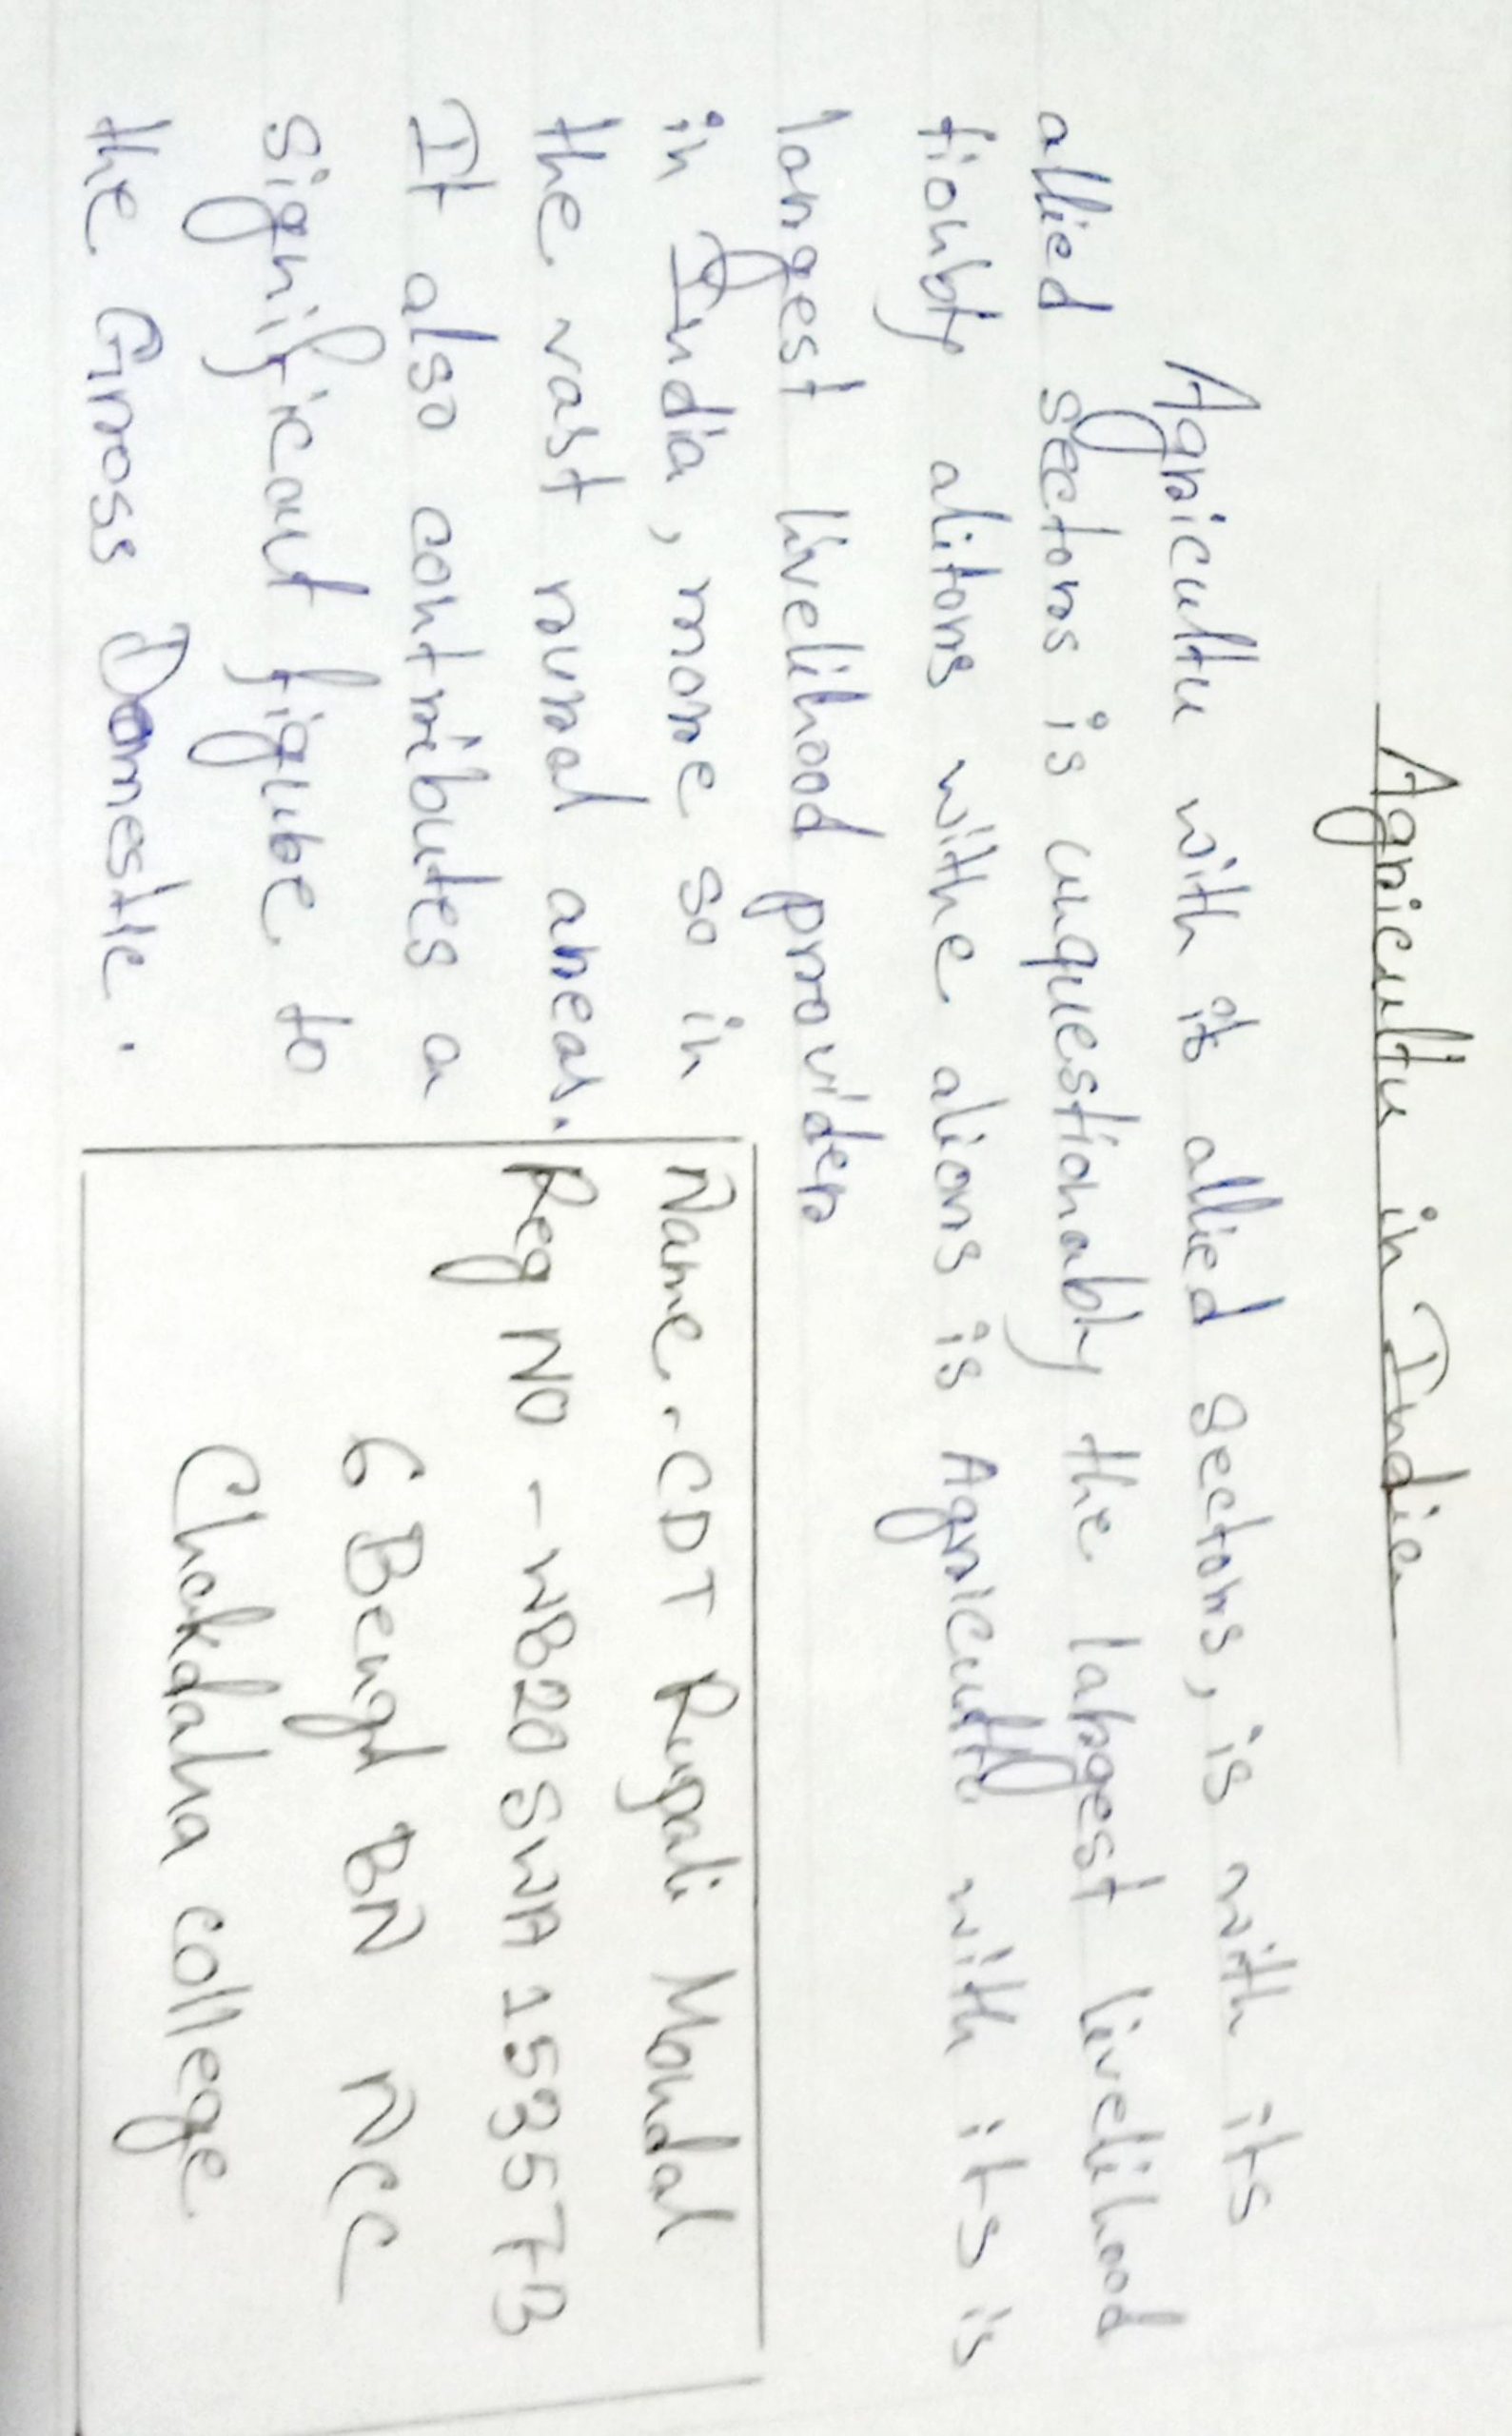 Agricultu in India
Agricultu with it's allied sectors, is with its
allied sectors is unquestionably the largest livelihood
tionbly alitors withe alions is Agricultu with its is
largest livelihood provider
in India, more so in
the vast rural areas.
It also contributes a
significant figure to
the Gross Domestic.
Name - CDT Rupali Mondal
Reg NO - WB20SWA153573
6 Bengl BN NCC
Chakdaha college